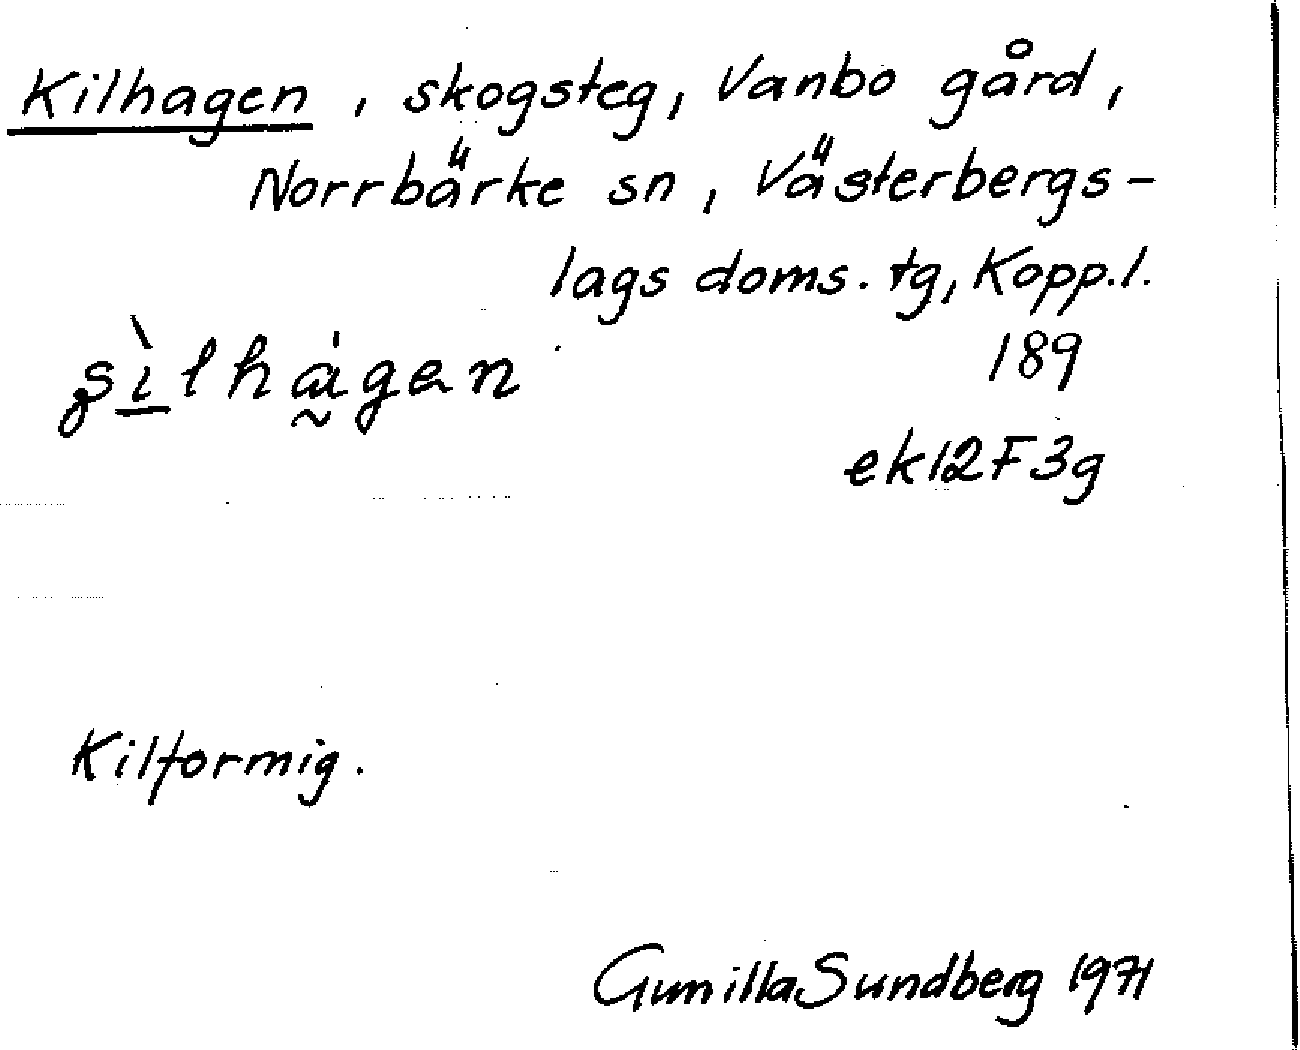 Kilhagen, skogsteg, Vanbo gård,
Norrbärke sn, Västerbergs-
lags doms. tg, Kopp.l.
189
ek12F3g
Kilformig.
Gunilla Sundberg 1971